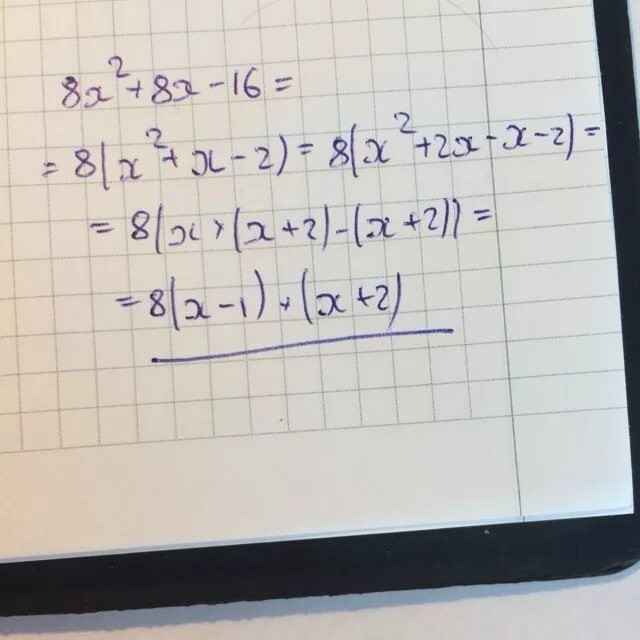 8x²+8x-16=
=8(x²+x-2)=8(x²+2x-x-2)=
=8(x×(x+2)-(x+2))=
=8(x-1)×(x+2)